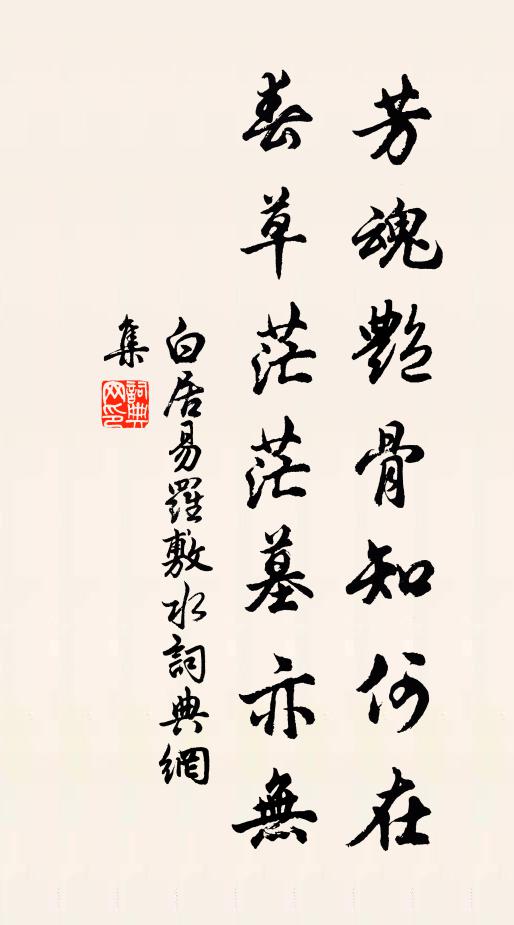 芳魂艷骨知何在
春草茫茫墓亦無
白居易羅敷水詞典網
集
詞典
网印